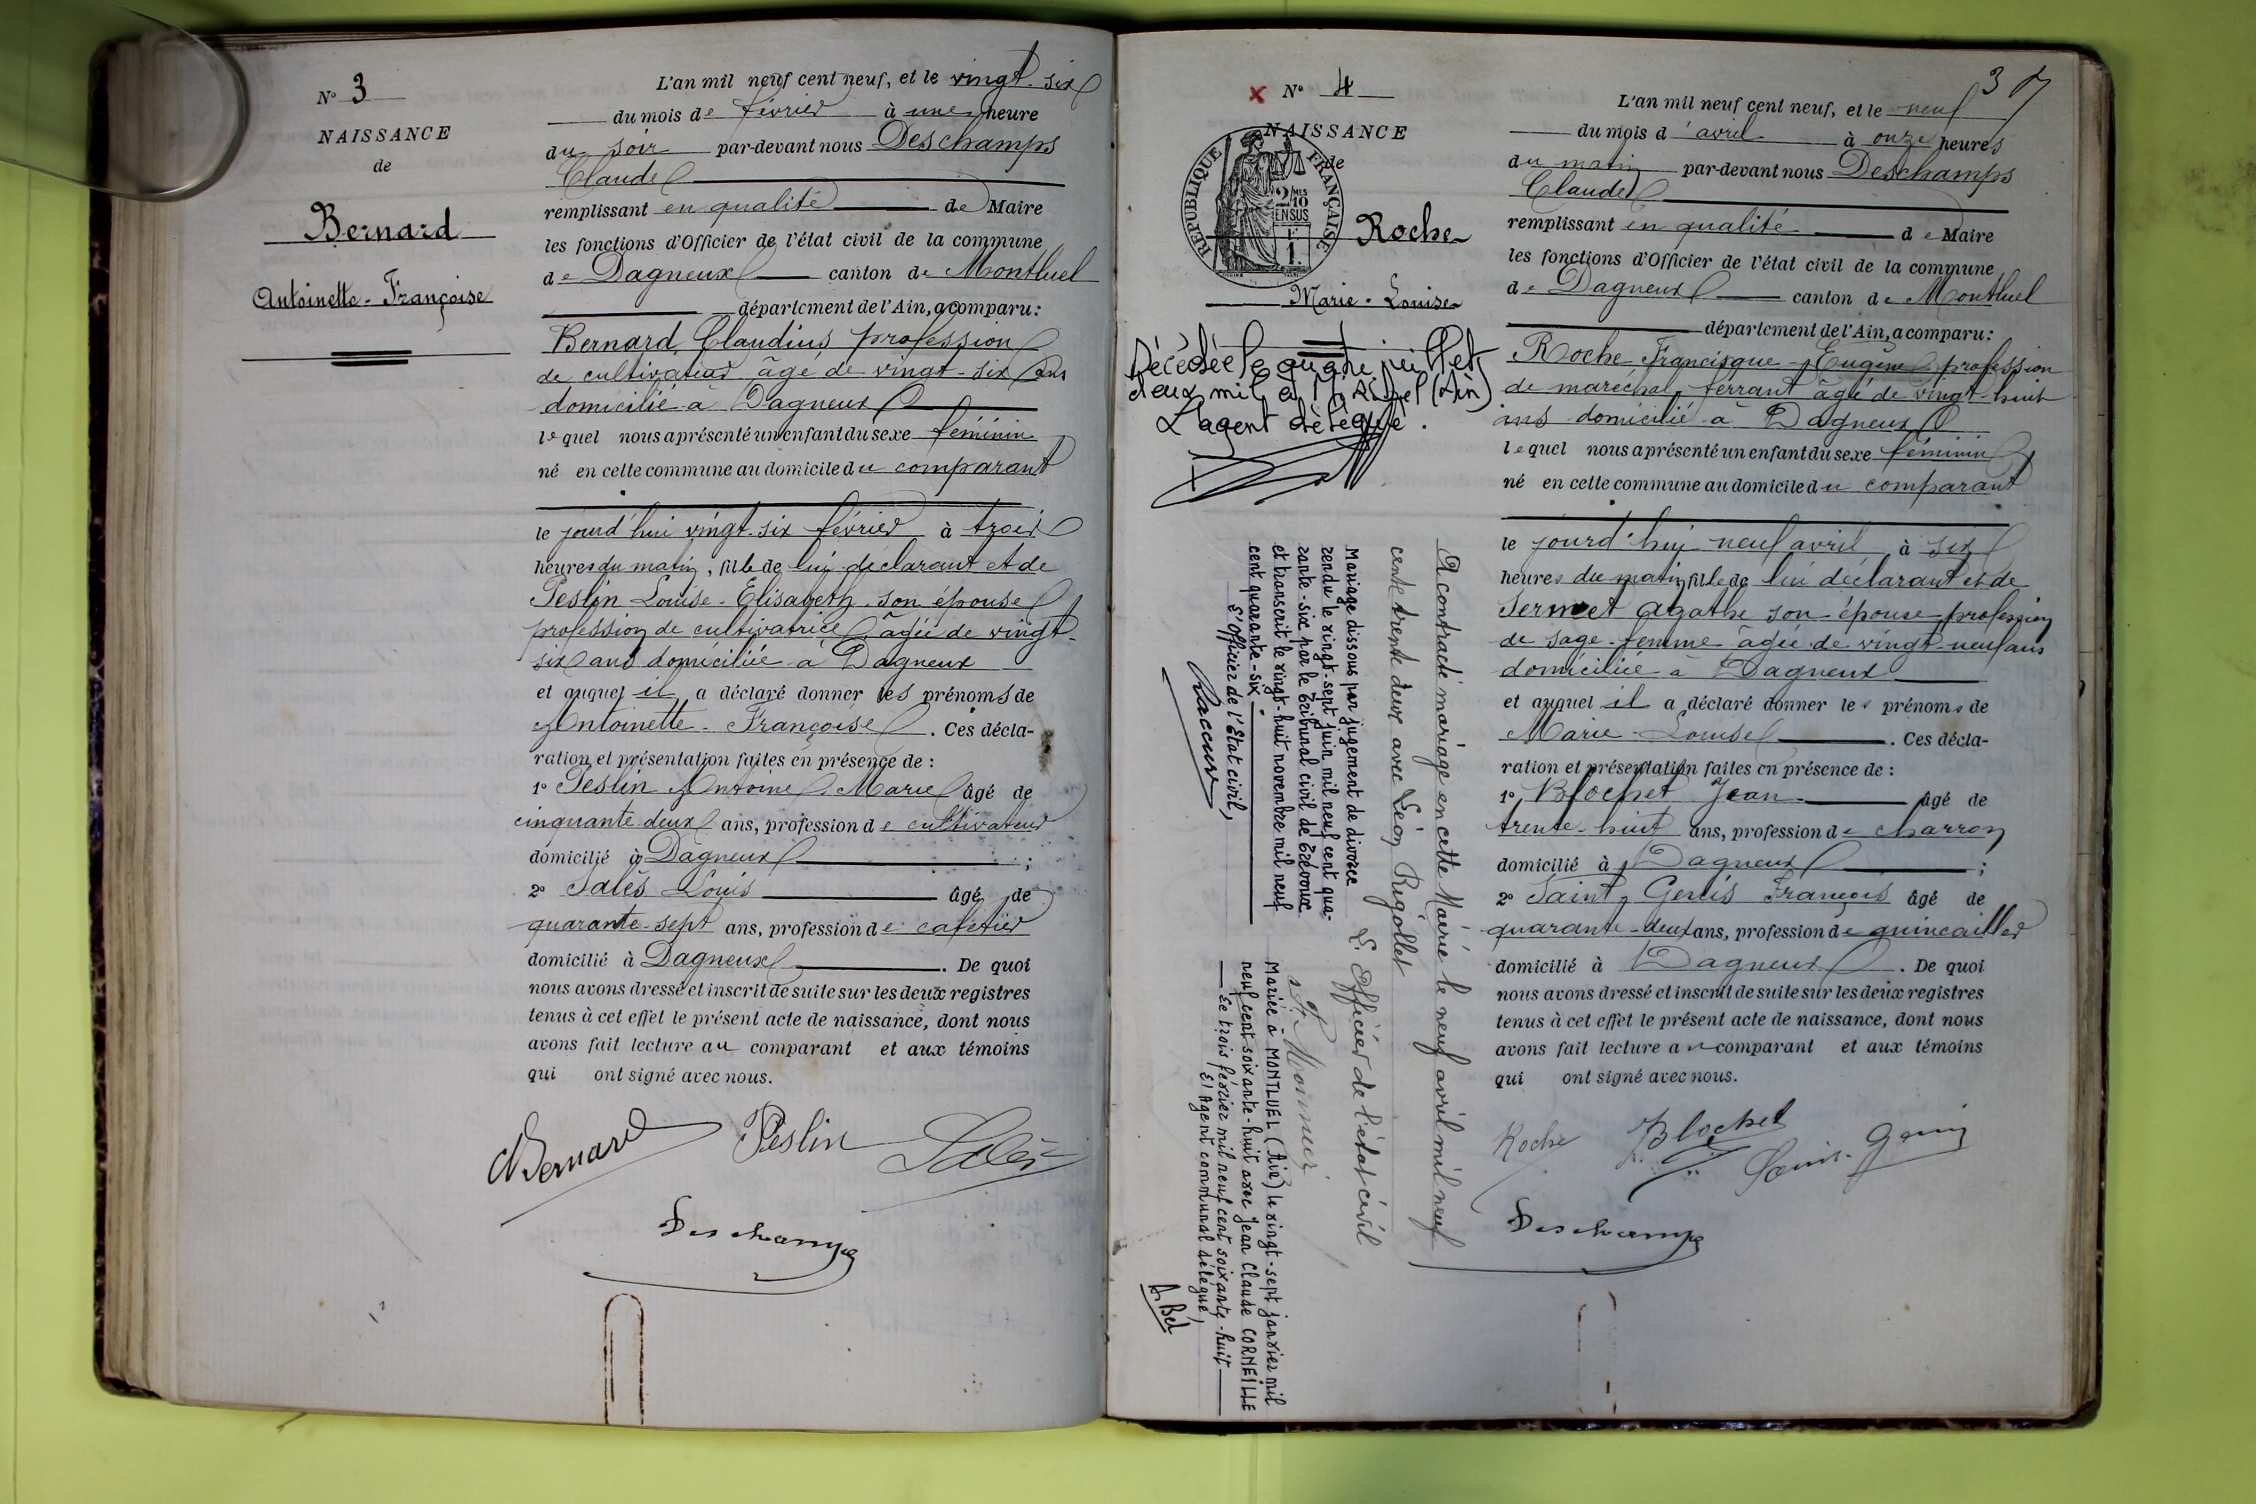 N° 3
NAISSANCE
de
Bernard
Antoinette-Françoise
L'an mil neuf cent neuf, et le vingt-six
du mois de février à une heure
du soir par-devant nous Deschamps
Claude
remplissant en qualité de Maire
les fonctions d'Officier de l'état civil de la commune
de Dagneux canton de Montluel
département de l'Ain, a comparu:
Bernard Claudius profession
de cultivateur âgé de vingt-six ans
domicilié à Dagneux
lequel nous a présenté un enfant du sexe féminin
né en cette commune au domicile du comparant
le jourd'hui vingt-six février à trois
heures du matin, fille de lui déclarant et de
Peslin Louise-Elisabeth son épouse
profession de cultivatrice âgée de vingt-
six ans domiciliée à Dagneux
et auquel il a déclaré donner les prénoms de
Antoinette-Françoise. Ces décla-
ration et présentation faites en présence de :
1° Peslin Antoine Marie âgé de
cinquante deux ans, profession de cultivateur
domicilié à Dagneux ;
2° Salès Louis âgé de
quarante-sept ans, profession de cafetier
domicilié à Dagneux. De quoi
nous avons dressé et inscrit de suite sur les deux registres
tenus à cet effet le présent acte de naissance, dont nous
avons fait lecture au comparant et aux témoins
qui ont signé avec nous.
Bernard Peslin Salès
Deschamps
3
N° 4
NAISSANCE
de
RÉPUBLIQUE FRANÇAISE
2/10 EN SUS
Roche
Marie-Louise
Décédée le quatre juillet
deux mil à (Ain)
L'agent délégué.
A contracté mariage en cette Mairie le neuf avril mil neuf
cent trente deux avec Léon Rigollet
L'Officier de l'état civil
Monnier
Mariage dissous par jugement de divorce
rendu le vingt-sept juin mil neuf cent qua-
rante-six par le tribunal civil de Trévoux
et transcrit le vingt-huit novembre mil neuf
cent quarante-six.
L'Officier de l'Etat civil,
Mariée à MONTLUEL (Ain) le vingt-sept janvier mil
neuf cent soixante-huit avec Jean Claude CORNEILLE
Le trois février mil neuf cent soixante-huit
L'Agent communal délégué,
A. Bel
L'an mil neuf cent neuf, et le neuf
du mois d'avril à onze heures
du matin par-devant nous Deschamps
Claude
remplissant en qualité de Maire
les fonctions d'Officier de l'état civil de la commune
de Dagneux canton de Montluel
département de l'Ain, a comparu:
Roche Francisque-Eugène profession
de maréchal ferrant âgé de vingt-huit
ans domicilié à Dagneux
lequel nous a présenté un enfant du sexe féminin
né en cette commune au domicile du comparant
le jourd'hui neuf avril à six
heures du matin fille de lui déclarant et de
Sermet Agathe son épouse profession
de sage-femme âgée de vingt-neuf ans
domiciliée à Dagneux
et auquel il a déclaré donner les prénoms de
Marie-Louise. Ces décla-
ration et présentation faites en présence de :
1° Blochet Jean âgé de
trente-huit ans, profession de charron
domicilié à Dagneux ;
2° Saint Genis François âgé de
quarante-deux ans, profession de quincailler
domicilié à Dagneux. De quoi
nous avons dressé et inscrit de suite sur les deux registres
tenus à cet effet le présent acte de naissance, dont nous
avons fait lecture au comparant et aux témoins
qui ont signé avec nous.
Roche Blochet Saint-Genis
Deschamps